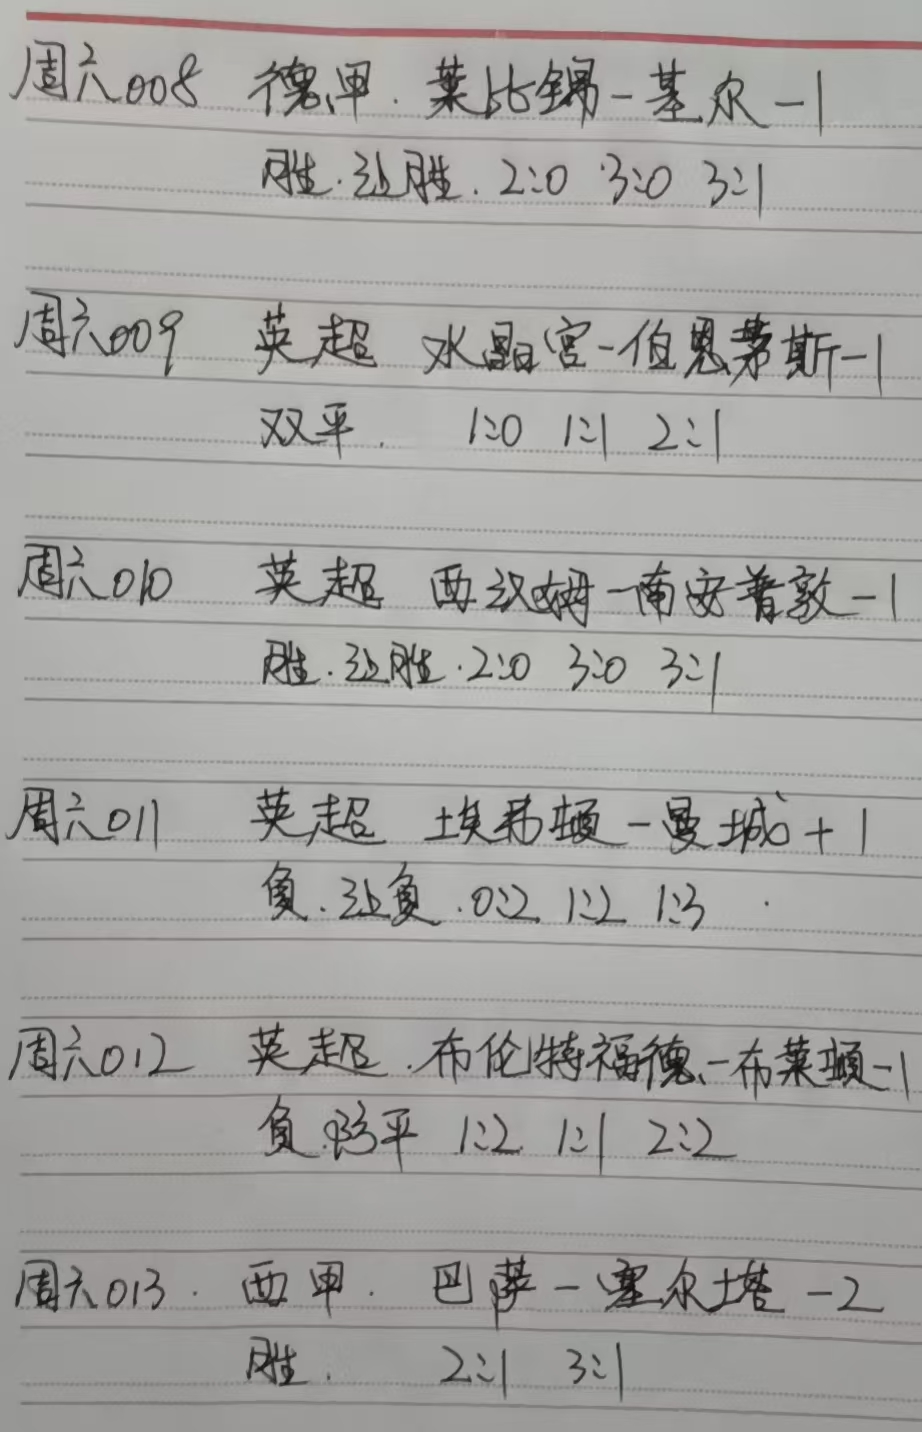 周六008 德甲. 莱比锡-基尔-1
胜.让胜. 2:0 3:0 3:1
周六009 英超 水晶宫-伯恩茅斯-1
双平. 1:0 1:1 2:1
周六010 英超 西汉姆-南安普敦-1
胜.让胜.2:0 3:0 3:1
周六011 英超 埃弗顿-曼城+1
负.让负.0:2 1:2 1:3
周六012 英超.布伦特福德-布莱顿-1
负. 平 1:2 1:1 2:2
周六013. 西甲. 巴萨-塞尔塔-2
胜. 2:1 3:1